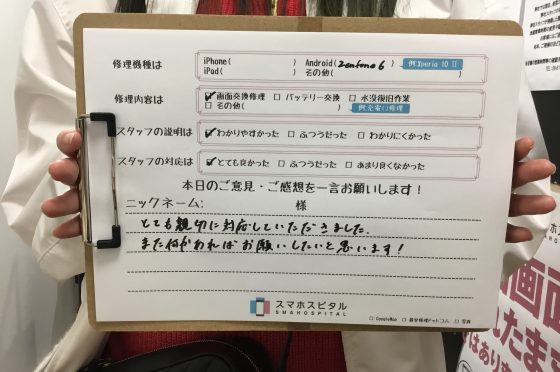 修理機種は
iPhone( ) Android(zenfone6) 例:Xperia 10 II
iPad( ) その他( )
修理内容は
画面交換修理 □ バッテリー交換 □ 水没復旧作業
□ その他( ) 例:充電口修理
スタッフの説明は わかりやすかった □ ふつうだった □ わかりにくかった
スタッフの対応は とても良かった □ ふつうだった □ あまり良くなかった
本日のご意見・ご感想を一言お願いします!
ニックネーム: 様
とても親切に対応していただきました.
また何かあればお願いしたいと思います!
スマホスピタル
SMAHOSPITAL
□ GoogleMap □ 最安修理ドットコム □ 写真